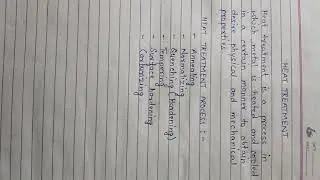 HEAT TREATMENT
Heat treatment is a process in
which metal is heated and cooled
in a certain manner to obtain
desire physical and mechanical
properties.
HEAT TREATMENT PROCESS :-
- Annealing
- Normalizing
- Quenching (Hardening)
- Tempering
- Surface hardening
- Carburizing